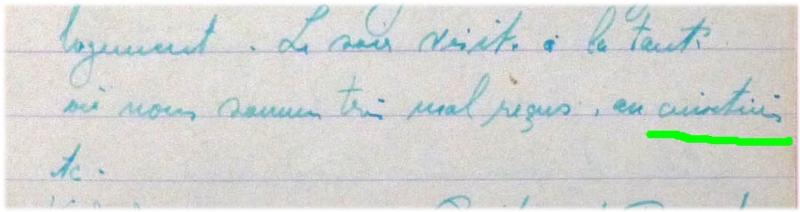 logement. Le soir visite à la tante
où nous sommes très mal reçus, au
etc.